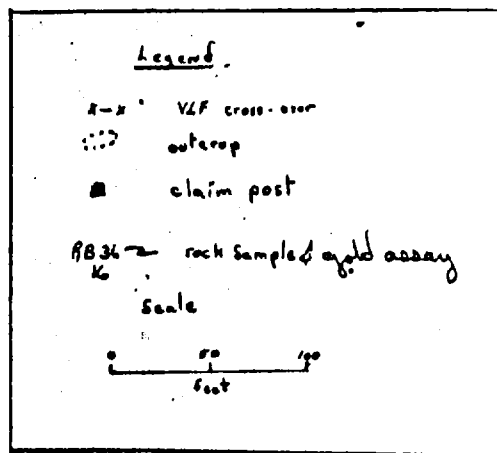 Legend
x-x VLF cross-over
outcrop
claim post
RB36 rock sample & gold assay
Scale
0 50 100
feet